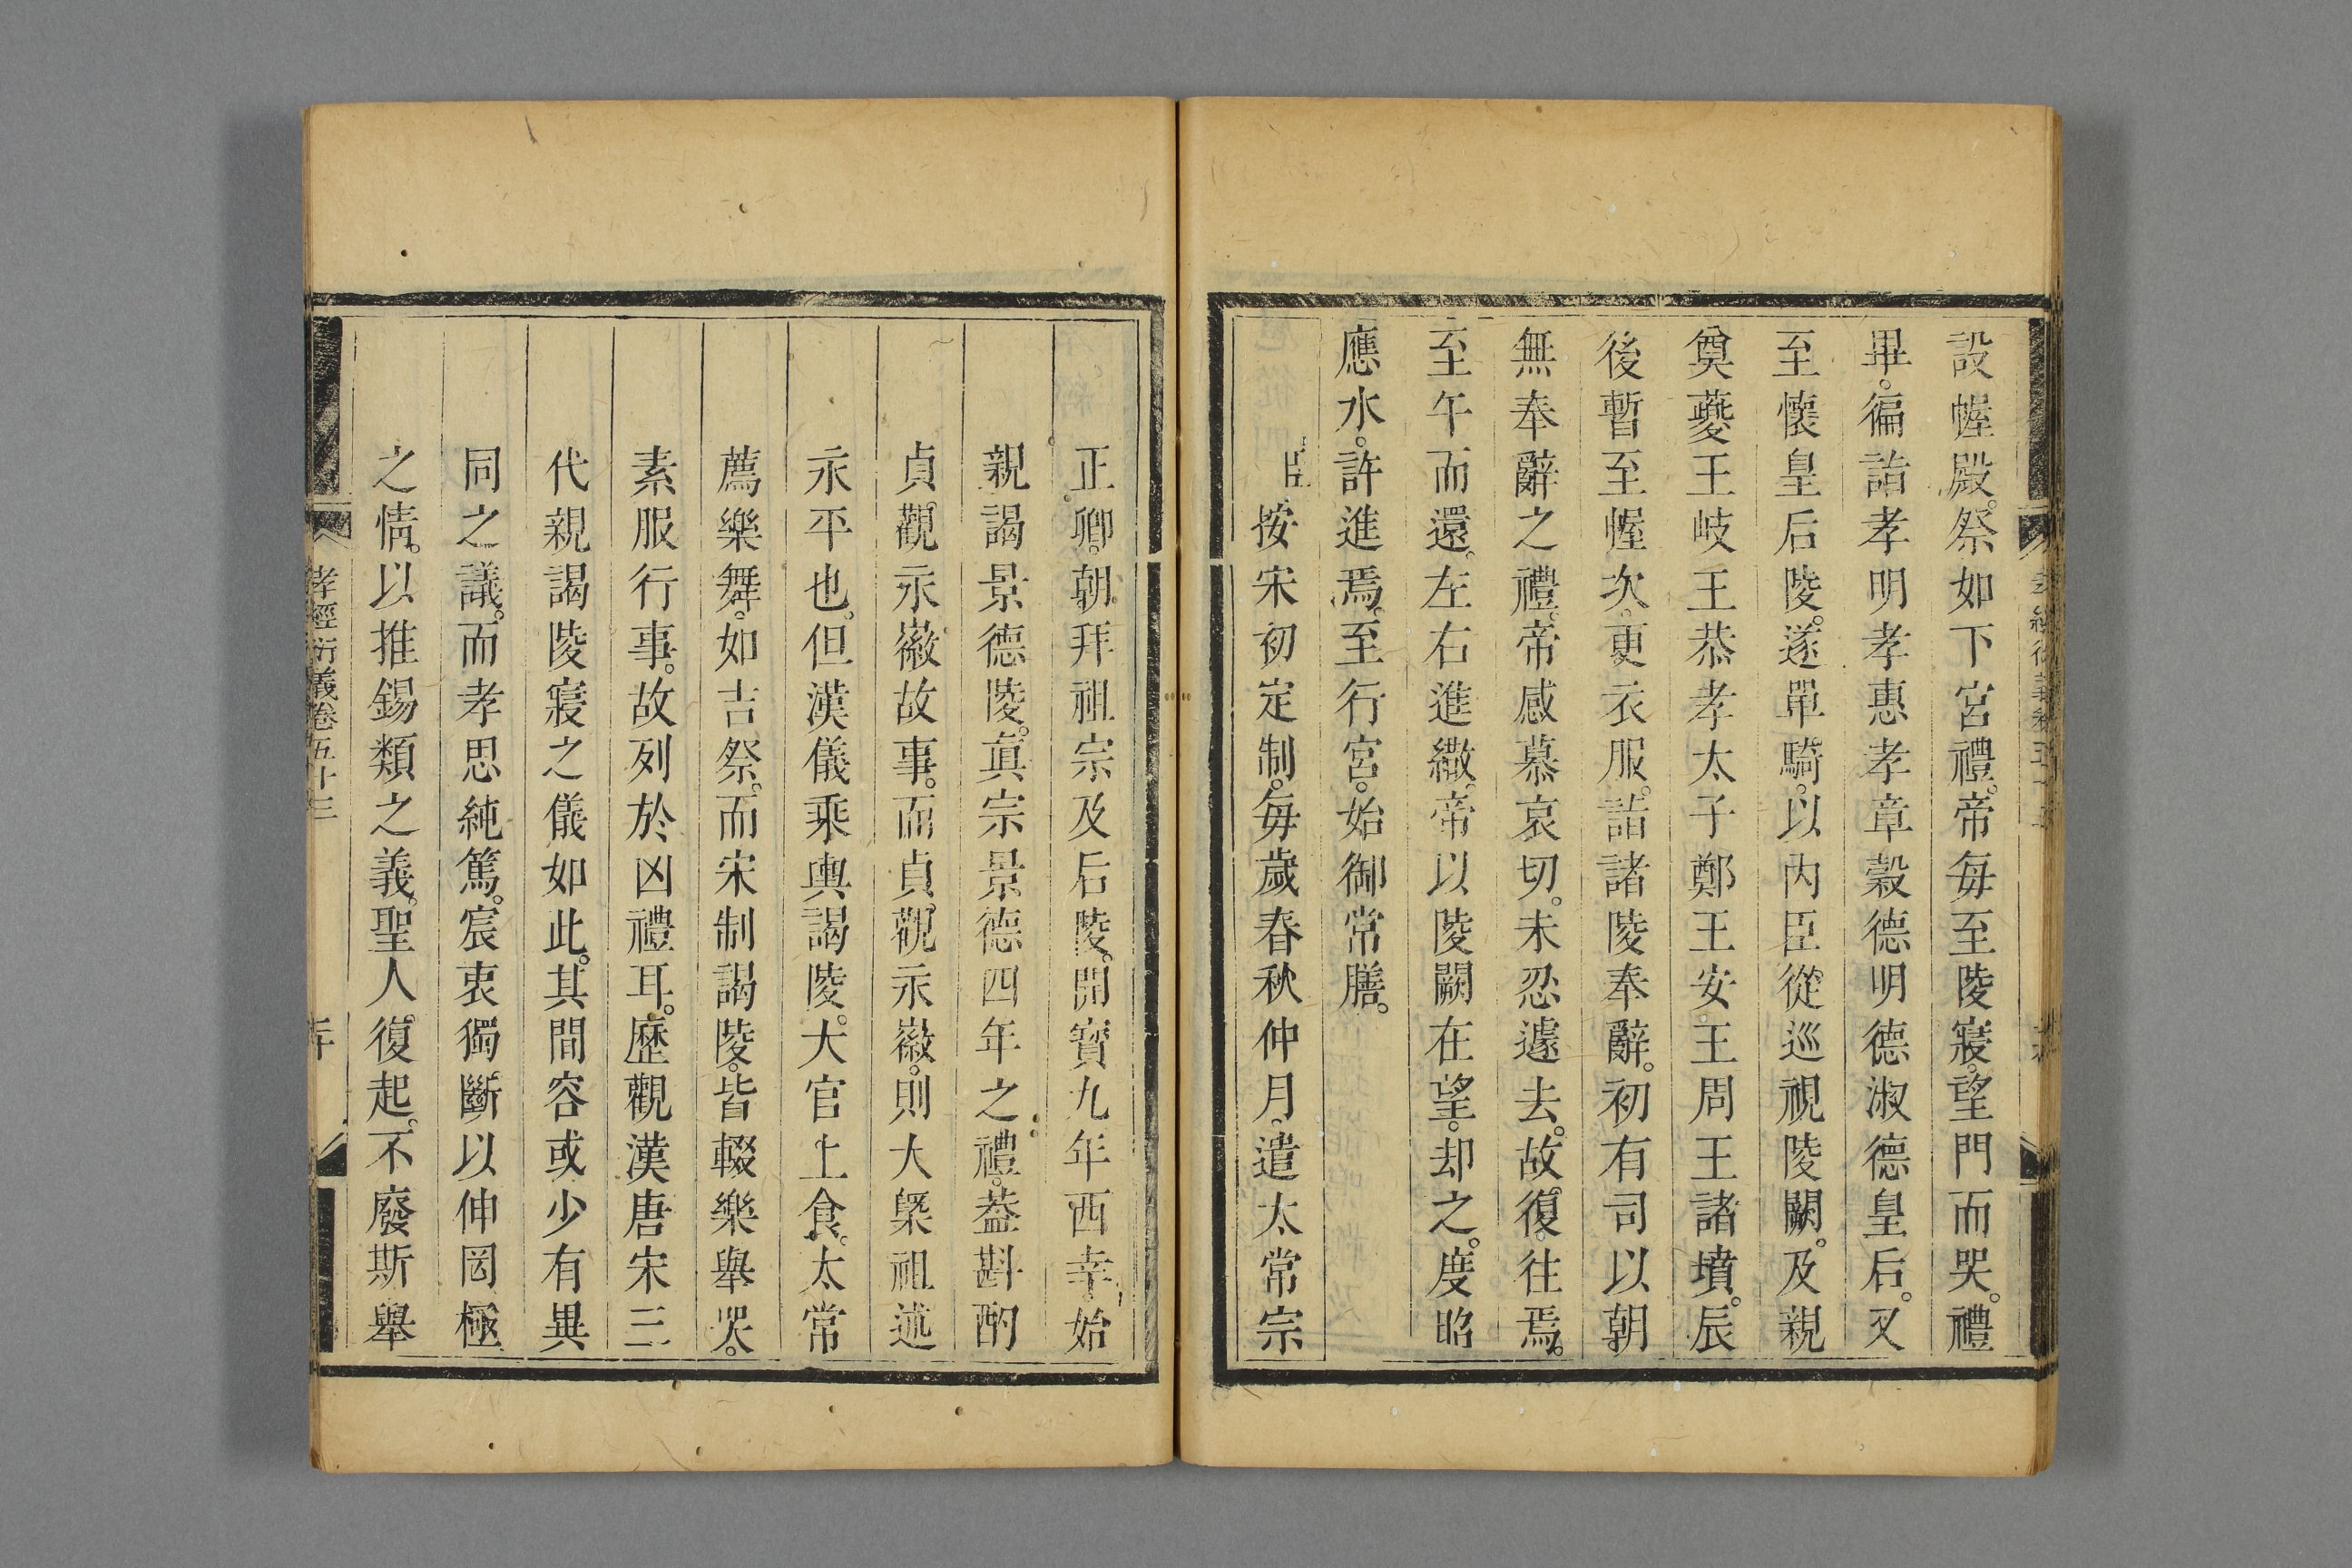 設幄殿。祭如下宮禮。帝每至陵寢。望門而哭。禮
畢。徧詣孝明孝惠孝章懿德明德淑德皇后。又
至懷皇后陵。遂單騎。以內臣從巡視陵闕。及親
奠夔王岐王恭孝太子鄭王安王周王諸墳。辰
後暫至幄次。更衣服。詣諸陵奉辭。初有司以朝
無奉辭之禮。帝感慕哀切。未忍遽去。故復往焉。
至午而還。左右進繖。帝以陵闕在望。却之。度昭
應水。許進焉。至行宮。始御常膳。
臣按宋初定制。每歲春秋仲月。遣太常宗
正卿。朝拜祖宗及后陵。開寶九年西幸。始
親謁景德陵。真宗景德四年之禮。葢斟酌
貞觀永徽故事。而貞觀永徽。則大槩祖述
永平也。但漢儀乘輿謁陵。大官上食。太常
薦樂舞。如吉祭。而宋制謁陵。皆輟樂舉哭。
素服行事。故列於凶禮耳。歷觀漢唐宋三
代親謁陵寢之儀如此。其間容或少有異
同之議。而孝思純篤。宸衷獨斷以伸罔極
之情。以推錫類之義。聖人復起。不廢斯舉
孝經衍義卷五十三